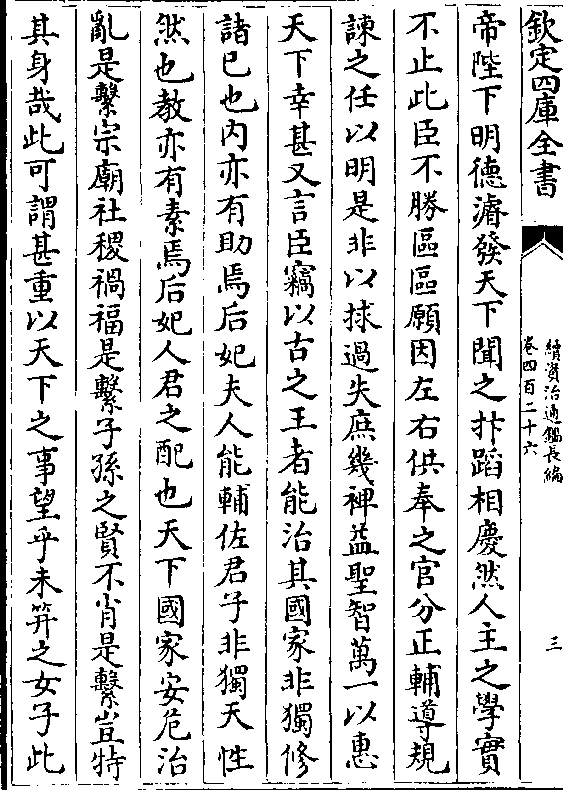 欽定四庫全書
續資治通鑑長編
卷四百二十六
三
帝陛下明德濬發天下聞之抃蹈相慶然人主之學實
不止此臣不勝區區願因左右供奉之官分正輔導規
諫之任以明是非以捄過失庶幾裨益聖智萬一以惠
天下幸甚又言臣竊以古之王者能治其國家非獨修
諸已也内亦有助焉后妃夫人能輔佐君子非獨天性
然也教亦有素焉后妃人君之配也天下國家安危治
亂是繫宗廟社稷禍福是繫子孫之賢不肖是繫豈特
其身哉此可謂甚重以天下之事望乎未笄之女子此